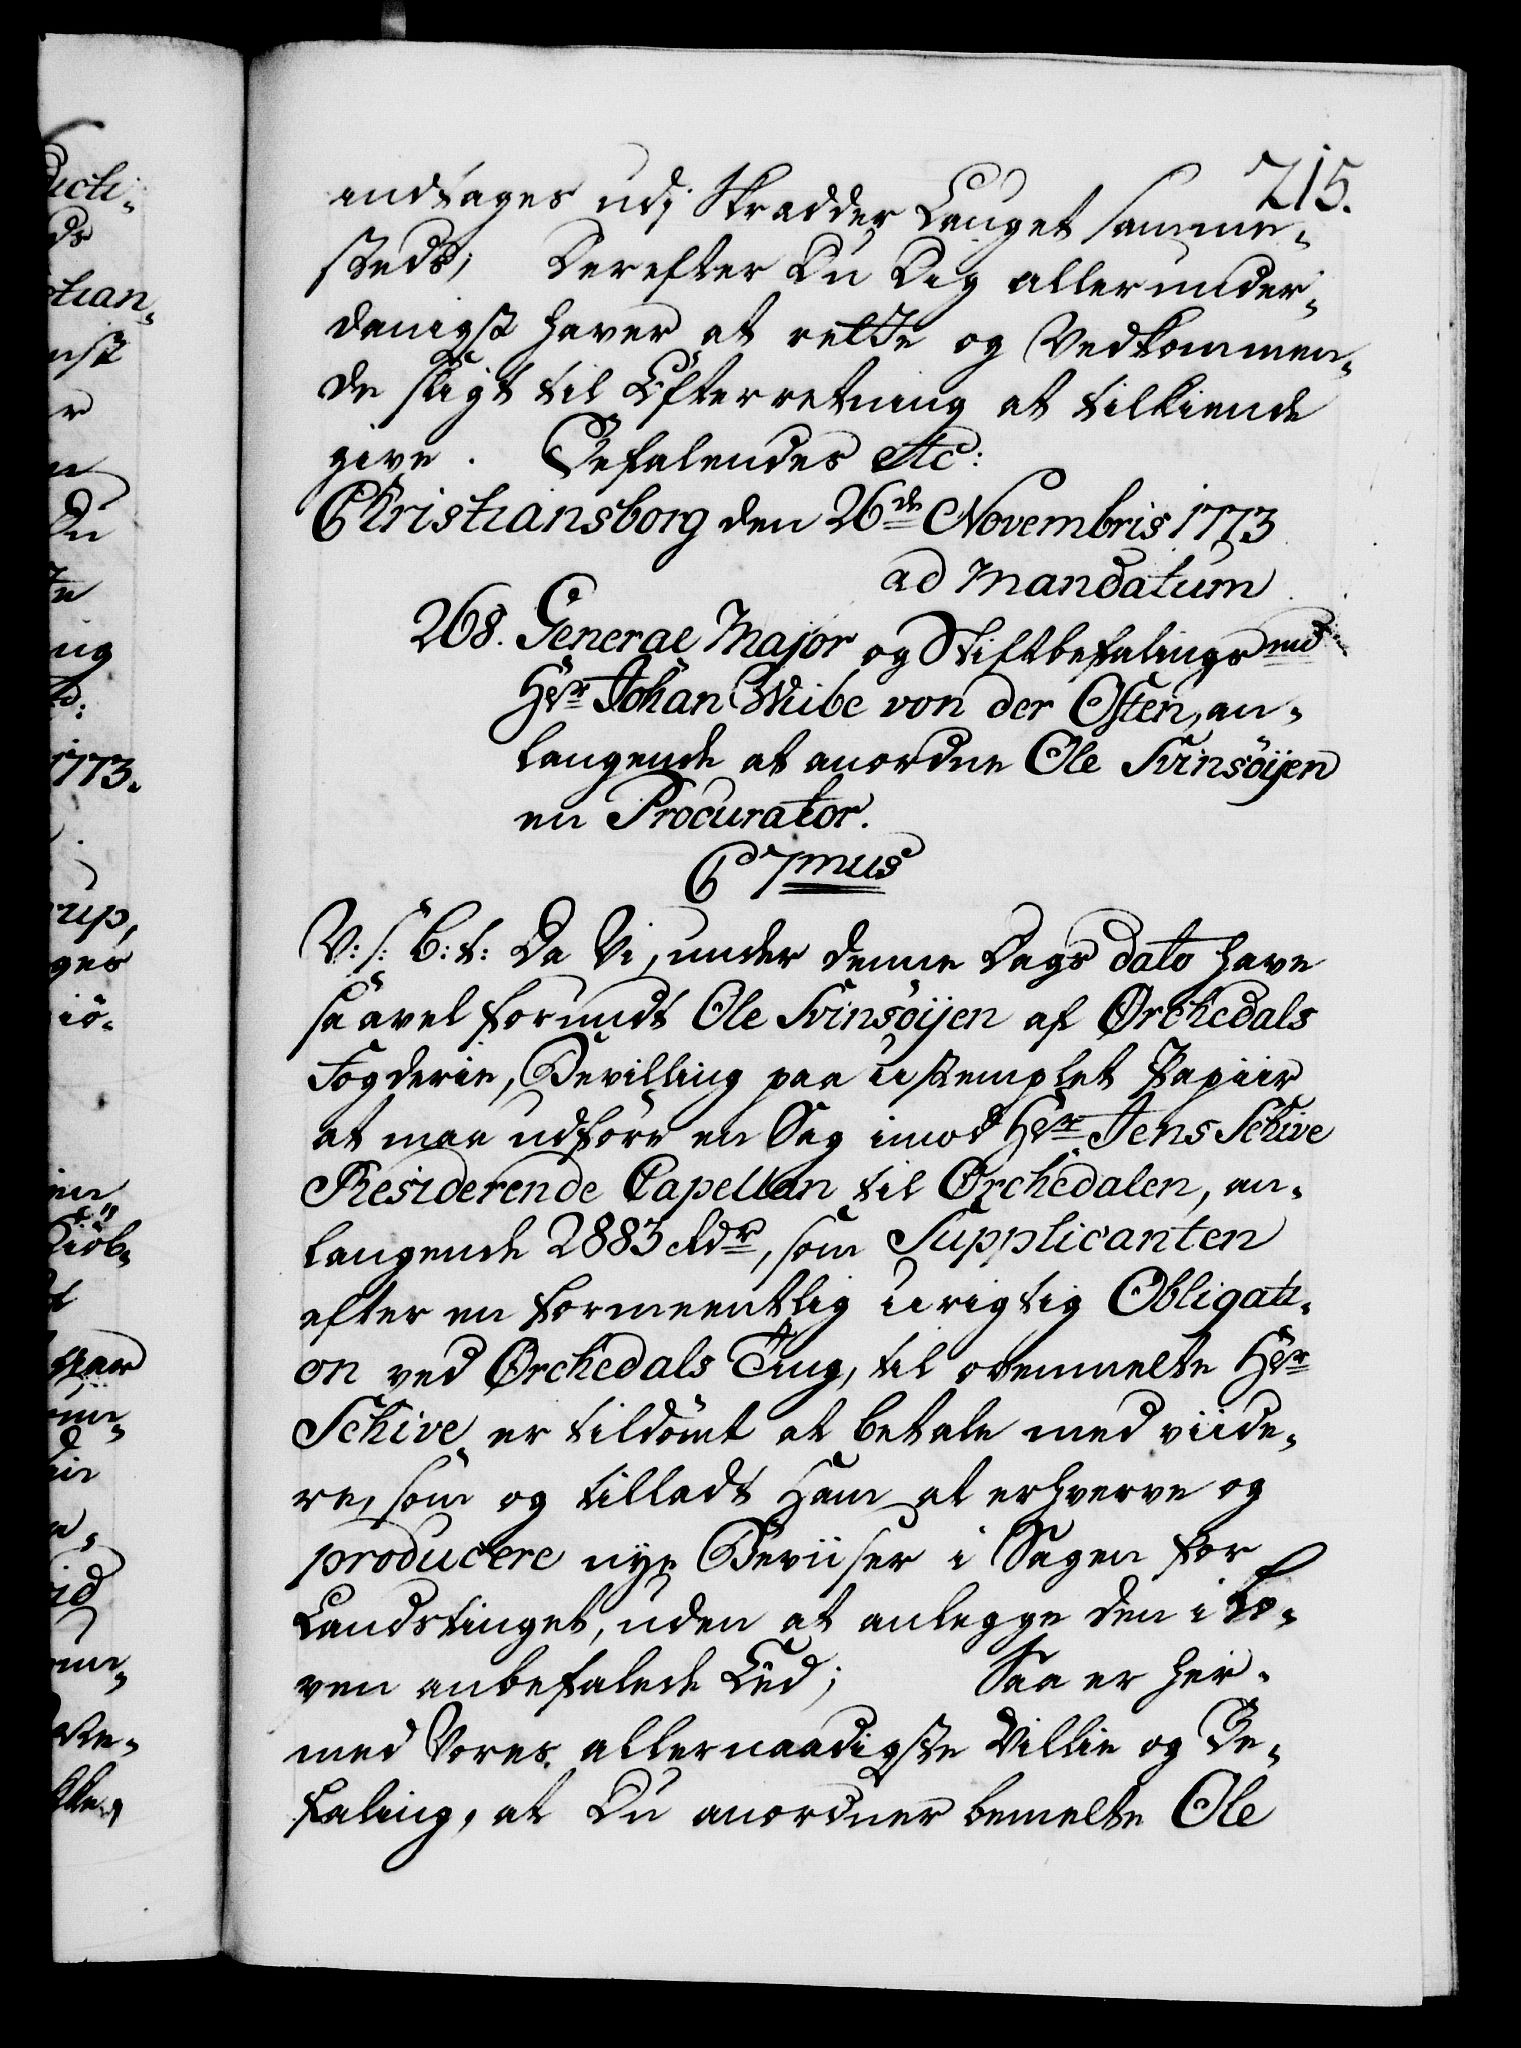 215.
indtages udj Skrædder Lauget samme-
steds; Derefter Du Dig allerunder-
danigst haver at rette og Vedkommen-
de sligt til Efterretning at tilkiende
give. Befalendes etc:
Christiansborg den 26de Novembris 1773
ad Mandatum
268. General Major og Stiftbefalingsmd
Hr Johan Wibe von der Osten, an-
langende at anordne Ole Svinsöijen
en Procurator.
C 7mus
V: s: B: t: Da Vi, under denne Dags dato have
saavel forundt Ole Svinsöijen af Ørchedals
Fogderie, Bevilling paa ustemplet Papiir
at maa udföre en Sag imod Hr Jens Schive
Residerende Capellan til Orchedalen, an-
langende 2883 rdr, som Supplicanten
efter en formeentlig urigtig Obligati-
on ved Ørchedals Ting, til ovenmelte Hr
Schive er tildömt at betale med viide-
re, som og tilladt ham at erhverve og
producere nye Beviiser i Sagen for
Landstinget, uden at anlegge den i Lo-
ven anbefalede Eed; Saa er her-
med Vores allernaadigste Villie og Be-
faling, at Du anordner bemelte Ole